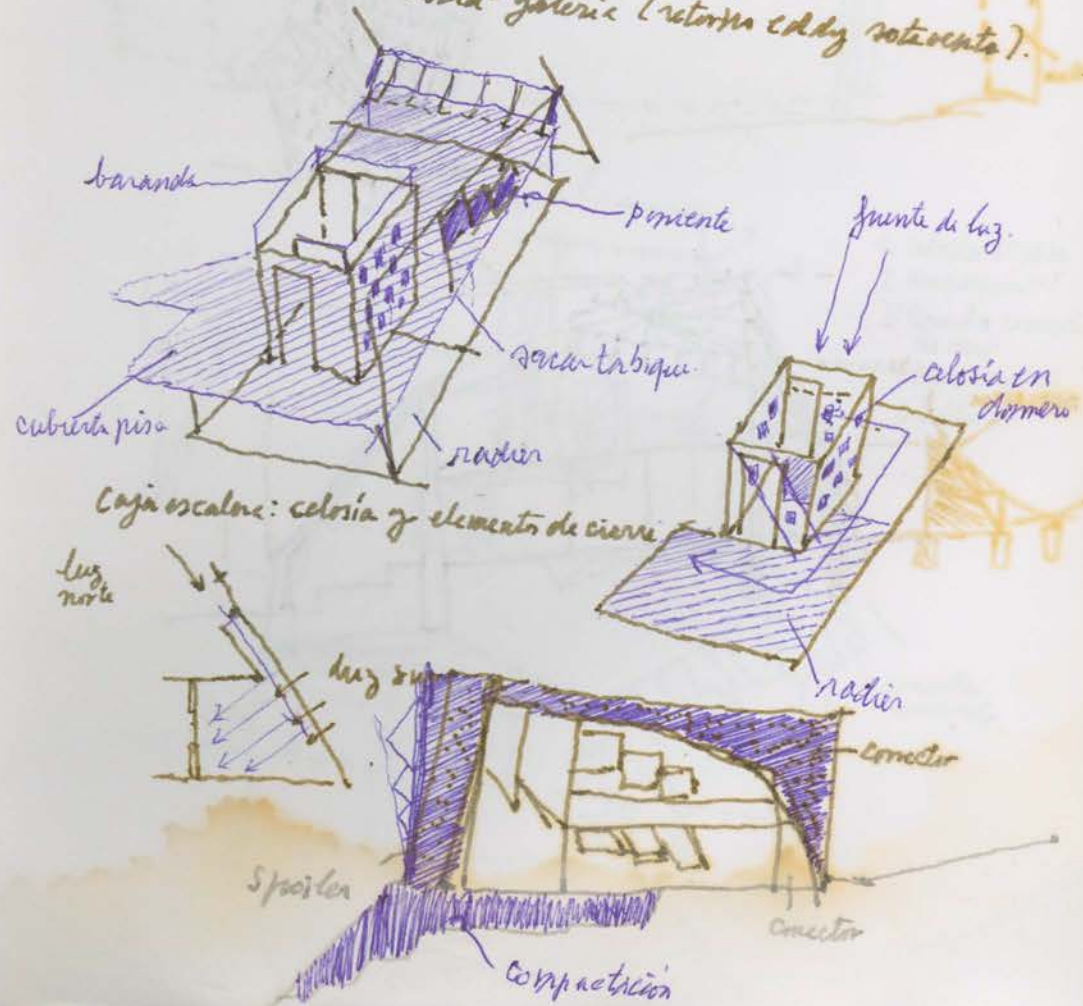 galería (retorno eddy sotavento).
baranda
poniente
fuente de luz.
sacar tabique.
celosía en
cubierta piso
radier
Caja escalera: celosía y elementos de cierre
luz
norte
luz sur
radier
conector
Spoiler
conector
compactación